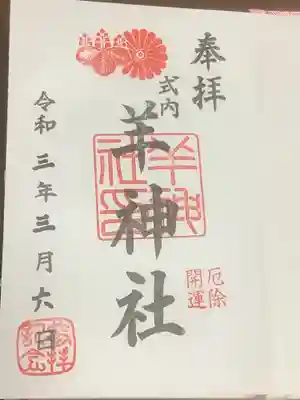 奉拝
式内
羊神社
羊神社印
厄除
開運
令和三年三月六日